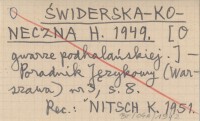 O ŚWIDERSKA-KO-
NECZNA H. 1949. [O
gwarze podhalańskiej.] —
(Poradnik Językowy (War-
szawa) nr 3, s. 8.
Rec.: NITSCH K. 1951.